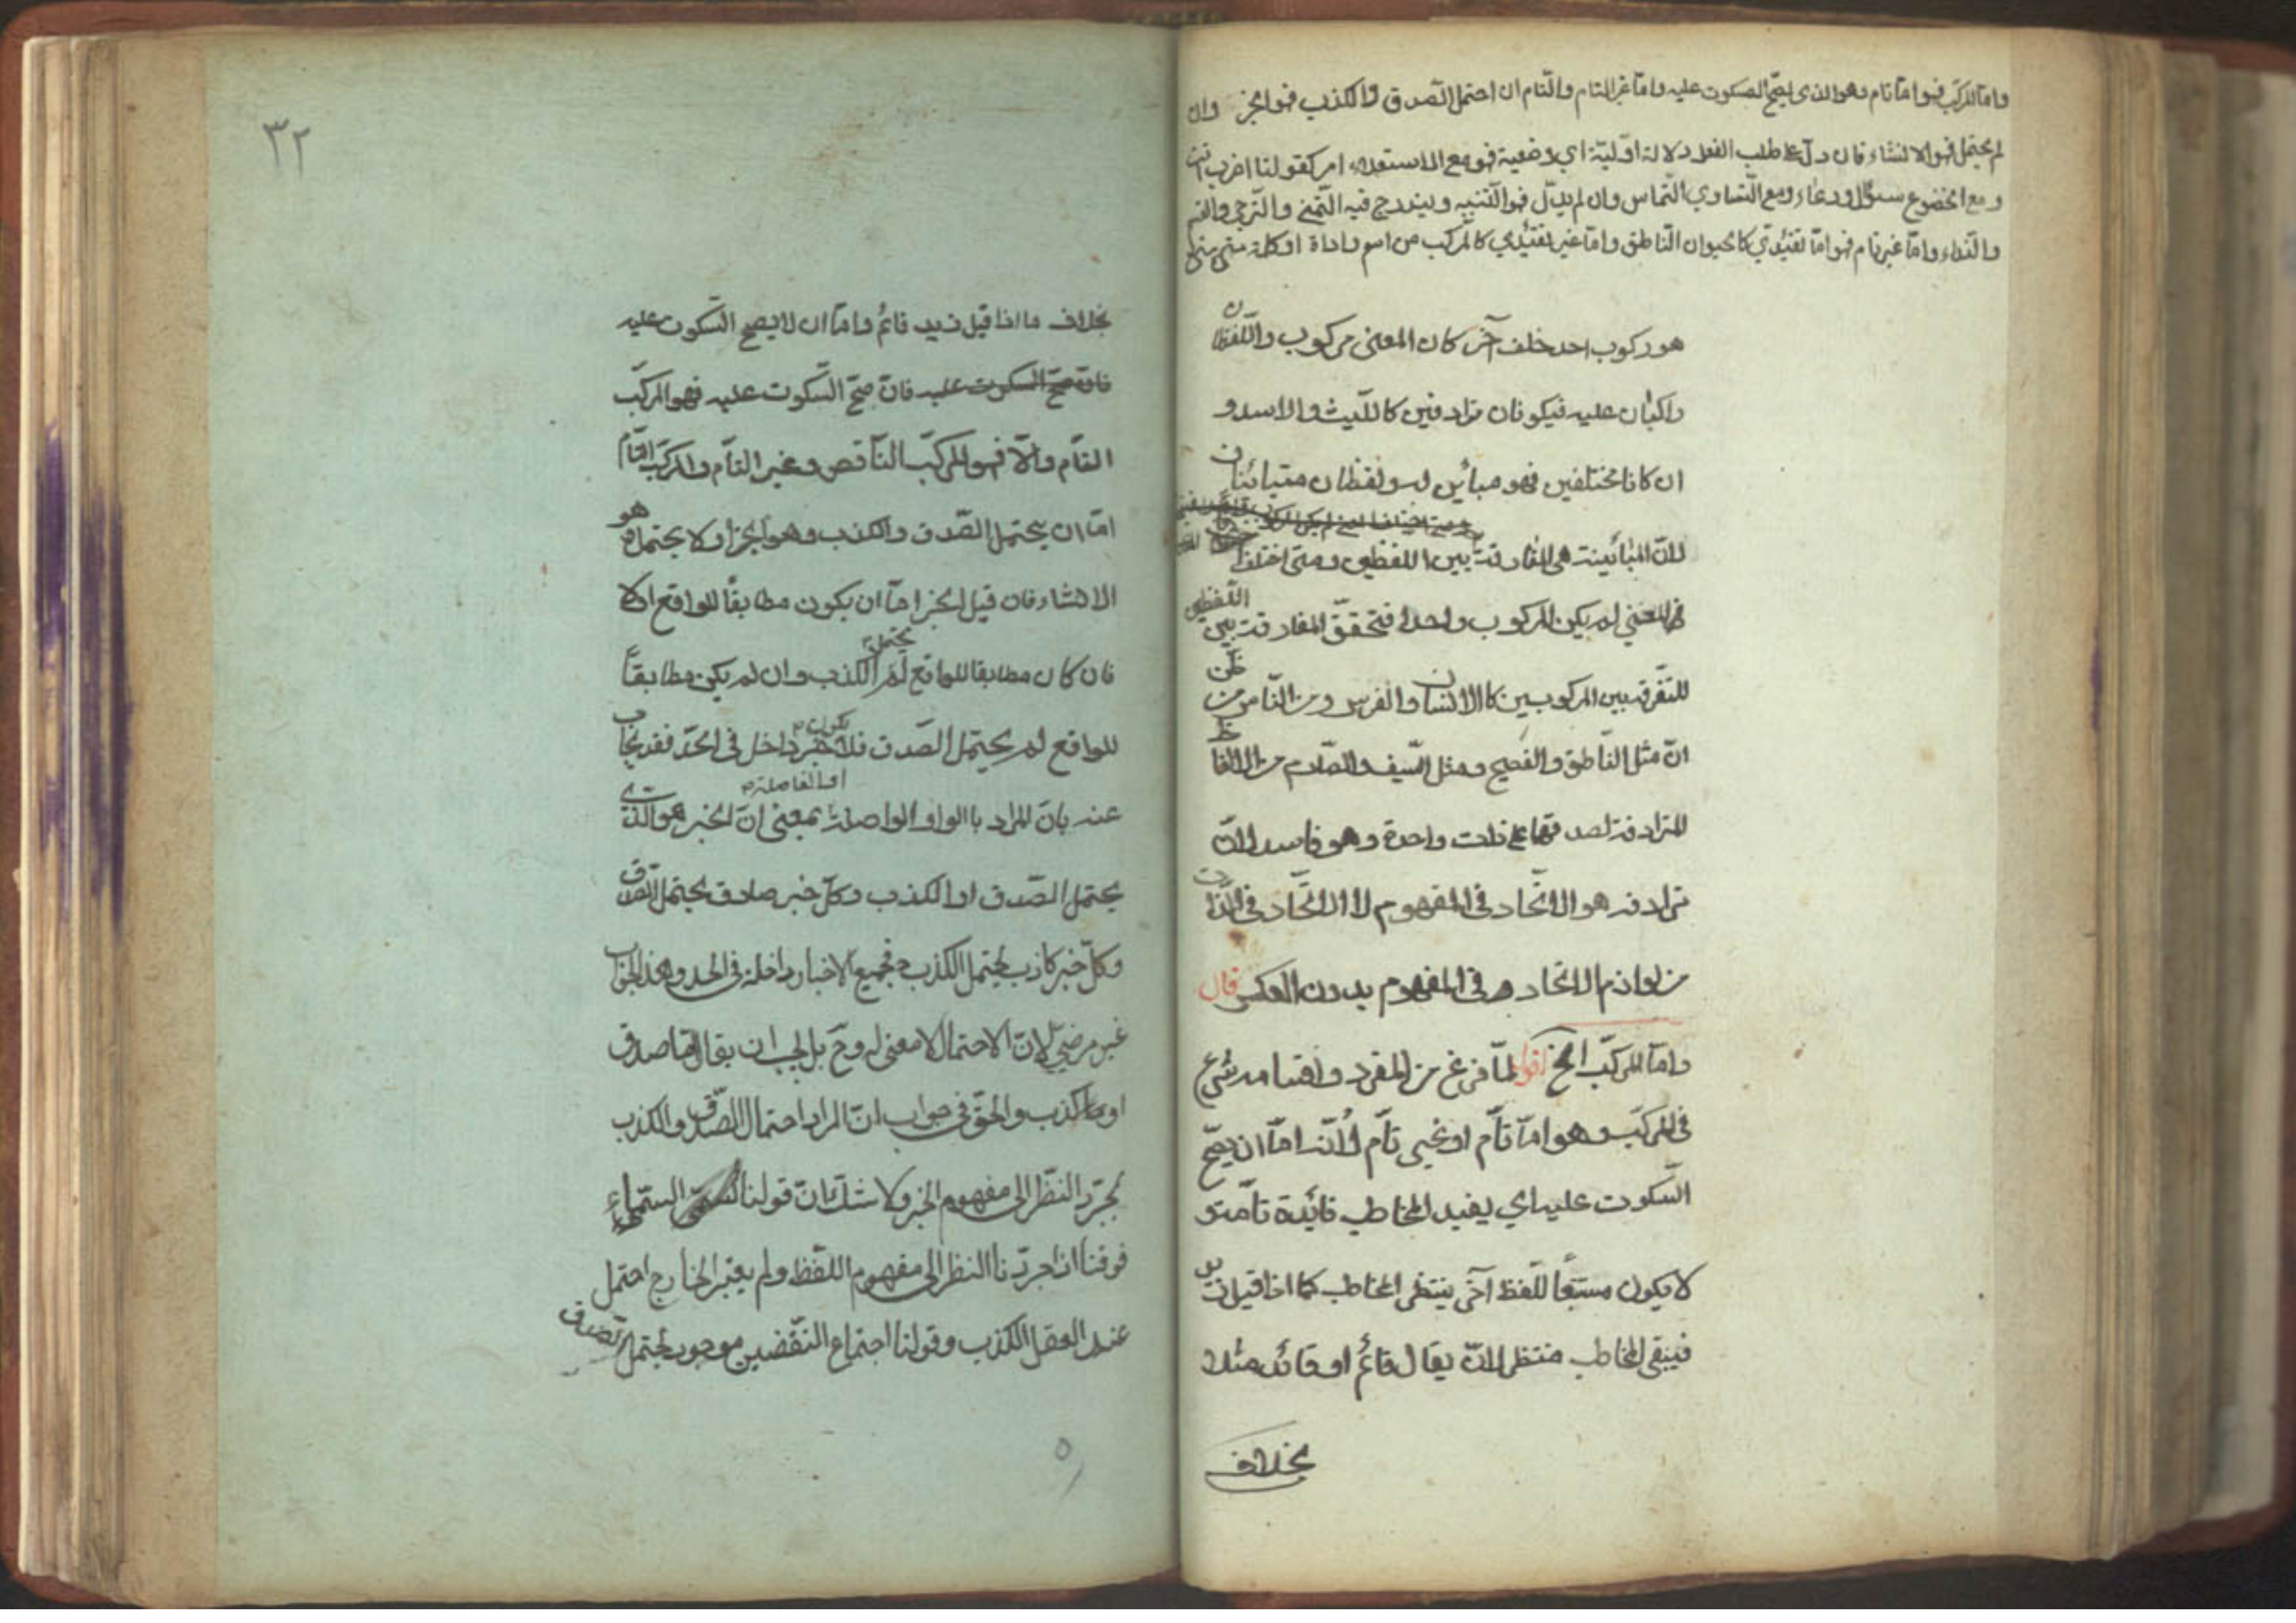 واما المركب فهو اما تام وهو الذى يصحّ السكوت عليه واما غير التام والتام ان احتمل الصدق والكذب فهو الخبر وان
لم يحتمل فهو الانشاء فان دلّ على طلب الفعل دلالة اوليّة اي وضعية فهو مع الاستعلاء امر كقولنا اضرب انت
ومع الخضوع سئوال ودعاء ومع التساوي التماس وان لم يدلّ فهو التنبيه ويندرج فيه التمنّى والترجى والقسم
والنداء واما غير تام فهو اما تقييدي كالحيوان الناطق واما غير تقييدي كالمركب من اسم واداة او كلمة
هو ركوب احد خلف آخر كان المعنى مركوب واللفظان
راكبان عليه فيكونان مترادفين كالليث والاسد و
ان كانا مختلفين فهو مبائين له ولفظان متبائنان
لانّ المبائينة هى المفارقة بين اللفظين ومتى اختلفا
فى المعني لم يكن المركوب واحدا فتحقق المفارقة بين اللفظين
للتفرقة بين المركوبين كاالانسان والفرس ومن النّاس من ظن
انّ مثل النّاطق والفصيح ومثل السّيف والصّارم من الالفاظ
المترادفة لصدقهما على ذات واحدة وهو فاسد لانّ
ترادف هو الاتّحاد فى المفهوم لا الاتّحاد فى الذّات
من لوازم الاتحاد فى المفهوم بدون العكس قال
وامّا المركّب الخ اقول لمّا فرغ من المفرد واقسامه شرع
فى المركّب وهو امّا تامّ او غير تامّ لانّه امّا ان يصحّ
السّكوت عليه اي يفيد المخاطب فائدة تامّة و
لا يكون مستتبعا للفظ آخر ينتظر المخاطب كما اذا قيل زيد
فيبقى المخاطب منتظرا لانّ يقال قائم او قائد مثلا
بخلاف
٣٢
بخلاف ما اذا قيل زيد قائم وامّا ان لا يصح السّكوت عليه
فانّ صحّ السّكوت عليه فانّ صحّ السّكوت عليه فهو المركّب
التّام والّا فهو المركّب النّاقص وغير التّام والمركّب التّام
امّا ان يحتمل الصّدق والكذب وهو الخبر او لا يحتمل وهو
الانشاء فان قيل الخبر امّا ان يكون مطابقا للواقع او لا
فان كان مطابقا للواقع لم يحتمل الكذب وان لم يكن مطابقاً
للواقع لم يحتمل الصّدق فلا يكون خبر داخل فى الحدّ فقد يجاب
عنه بانّ المراد باالواو الواصلة او الفاصلة بمعنى انّ الخبر هو الّذى
يحتمل الصّدق او الكذب وكلّ خبر صادق يحتمل الصّدق
وكلّ خبر كاذب يحتمل الكذب فجميع الاخبار داخلة فى الحد وهذا الجواب
غير مرضىّ لانّ الاحتمال لا معنى له وحّ بل يجب ان يقال ما صدق
او كذب والحقّ فى جواب انّ المراد احتمال الصّدق والكذب
بمجرّد النّظر الى مفهوم الخبر ولا شكّ انّ قولنا السّماء
فوقنا اذا جرّدنا النظر الى مفهوم اللفظ ولم يعتبر الخارج احتمل
عند العقل الكذب وقولنا اجتماع النّقضين موجود يحتمل الصّدق